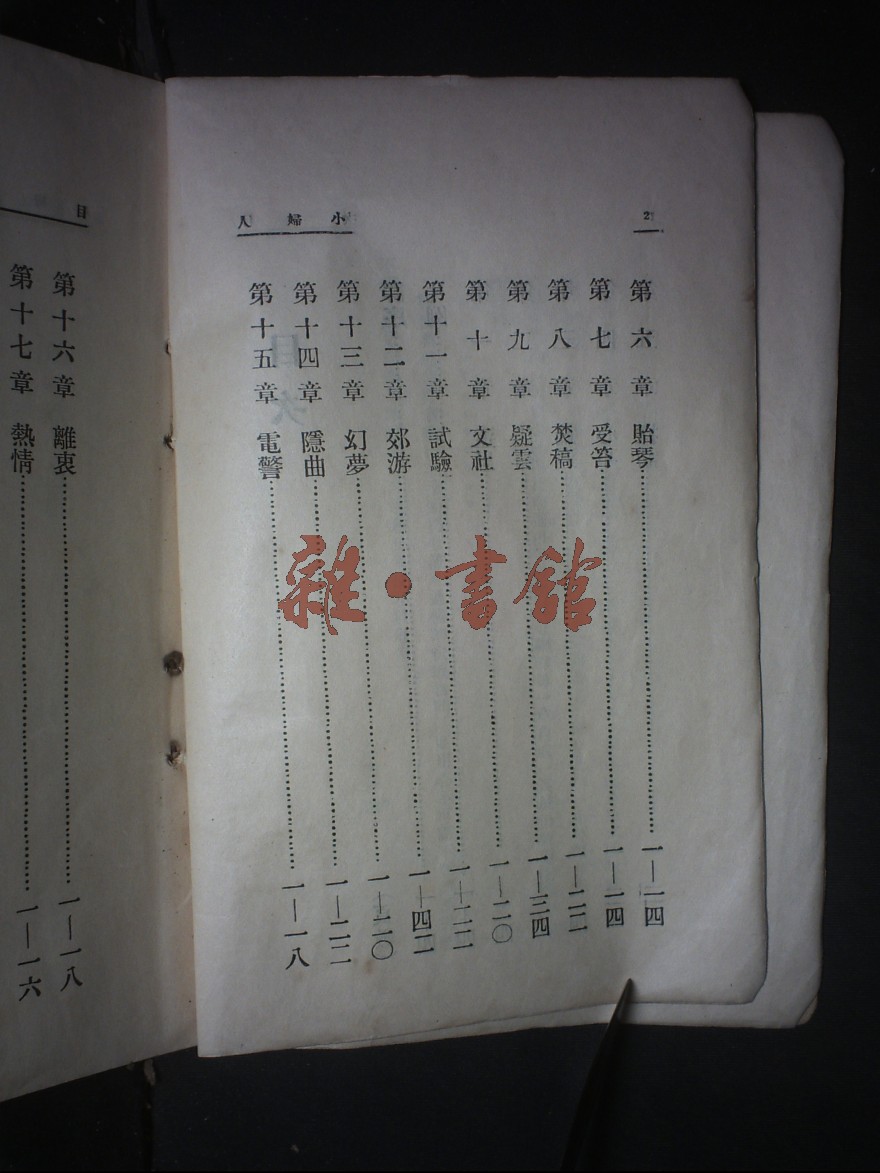 2
小婦人
第六章 貽琴……一—二四
第七章 受笞……一—一四
第八章 焚稿……一—二二
第九章 疑雲……一—三四
第十章 文社……一—二〇
第十一章 試驗……一—二二
第十二章 郊游……一—四二
第十三章 幻夢……一—二〇
第十四章 隱曲……一—二二
第十五章 電警……一—一八
目
第十六章 離衷……一—一八
第十七章 熱情……一—一六
雜·書館